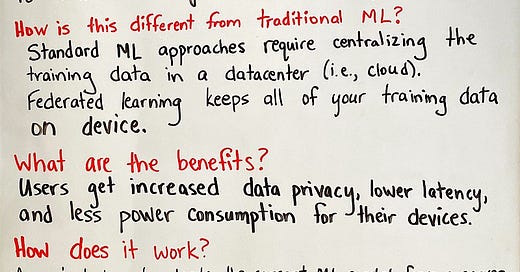 How is this different from traditional ML?
Standard ML approaches require centralizing the
training data in a datacenter (i.e., cloud).
Federated learning keeps all of your training data
on device.
What are the benefits?
Users get increased data privacy, lower latency,
and less power consumption for their devices.
How does it work?